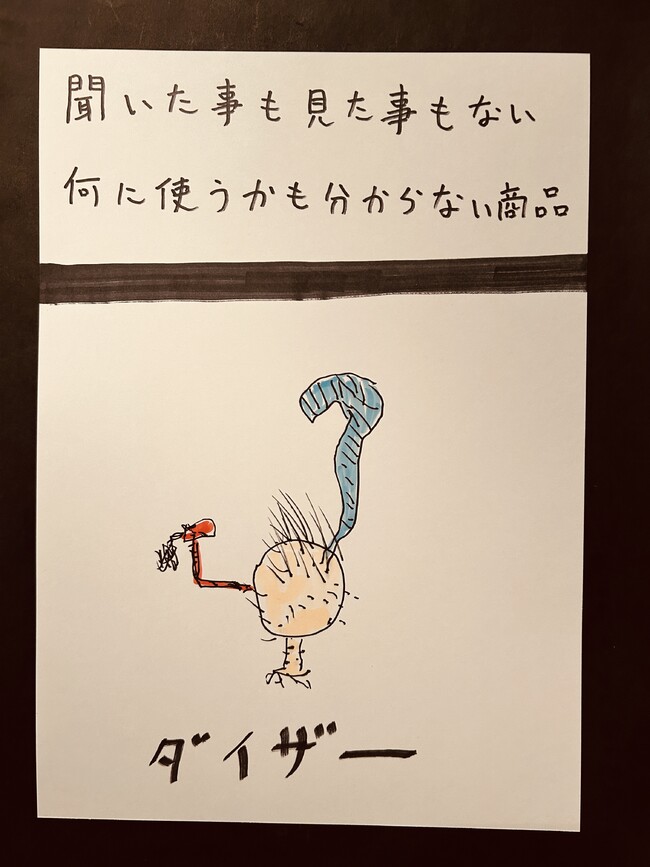 聞いた事も見た事もない
何に使うかも分からない商品
ダイザー